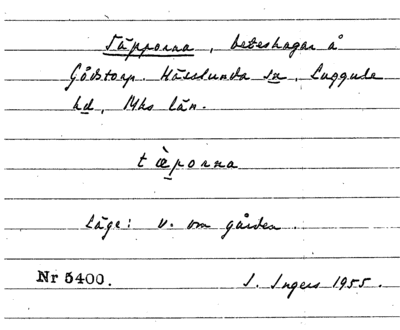 Täpporna, beteshagar å
Gödstorp. Hässlunda sn, Luggude
hd, Mhs län.
tæ̀porna
Läge: v. om gården.
Nr 5400. I. Ingers 1955.